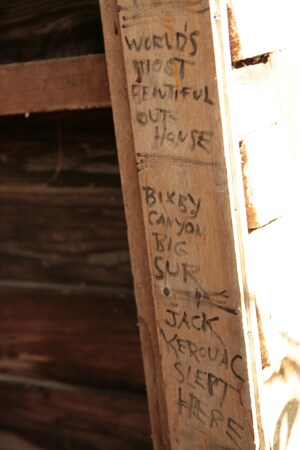 WORLD'S
MOST
BEAUTIFUL
OUT-
HOUSE
BIXBY
CANYON
BIG
SUR
JACK
KEROUAC
SLEPT
HERE